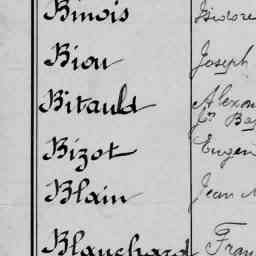 Binois Isidore
Biou Joseph
Bitauld
Jn Bap
Bizot Eugen
Blain Jean
Blanchard Fran